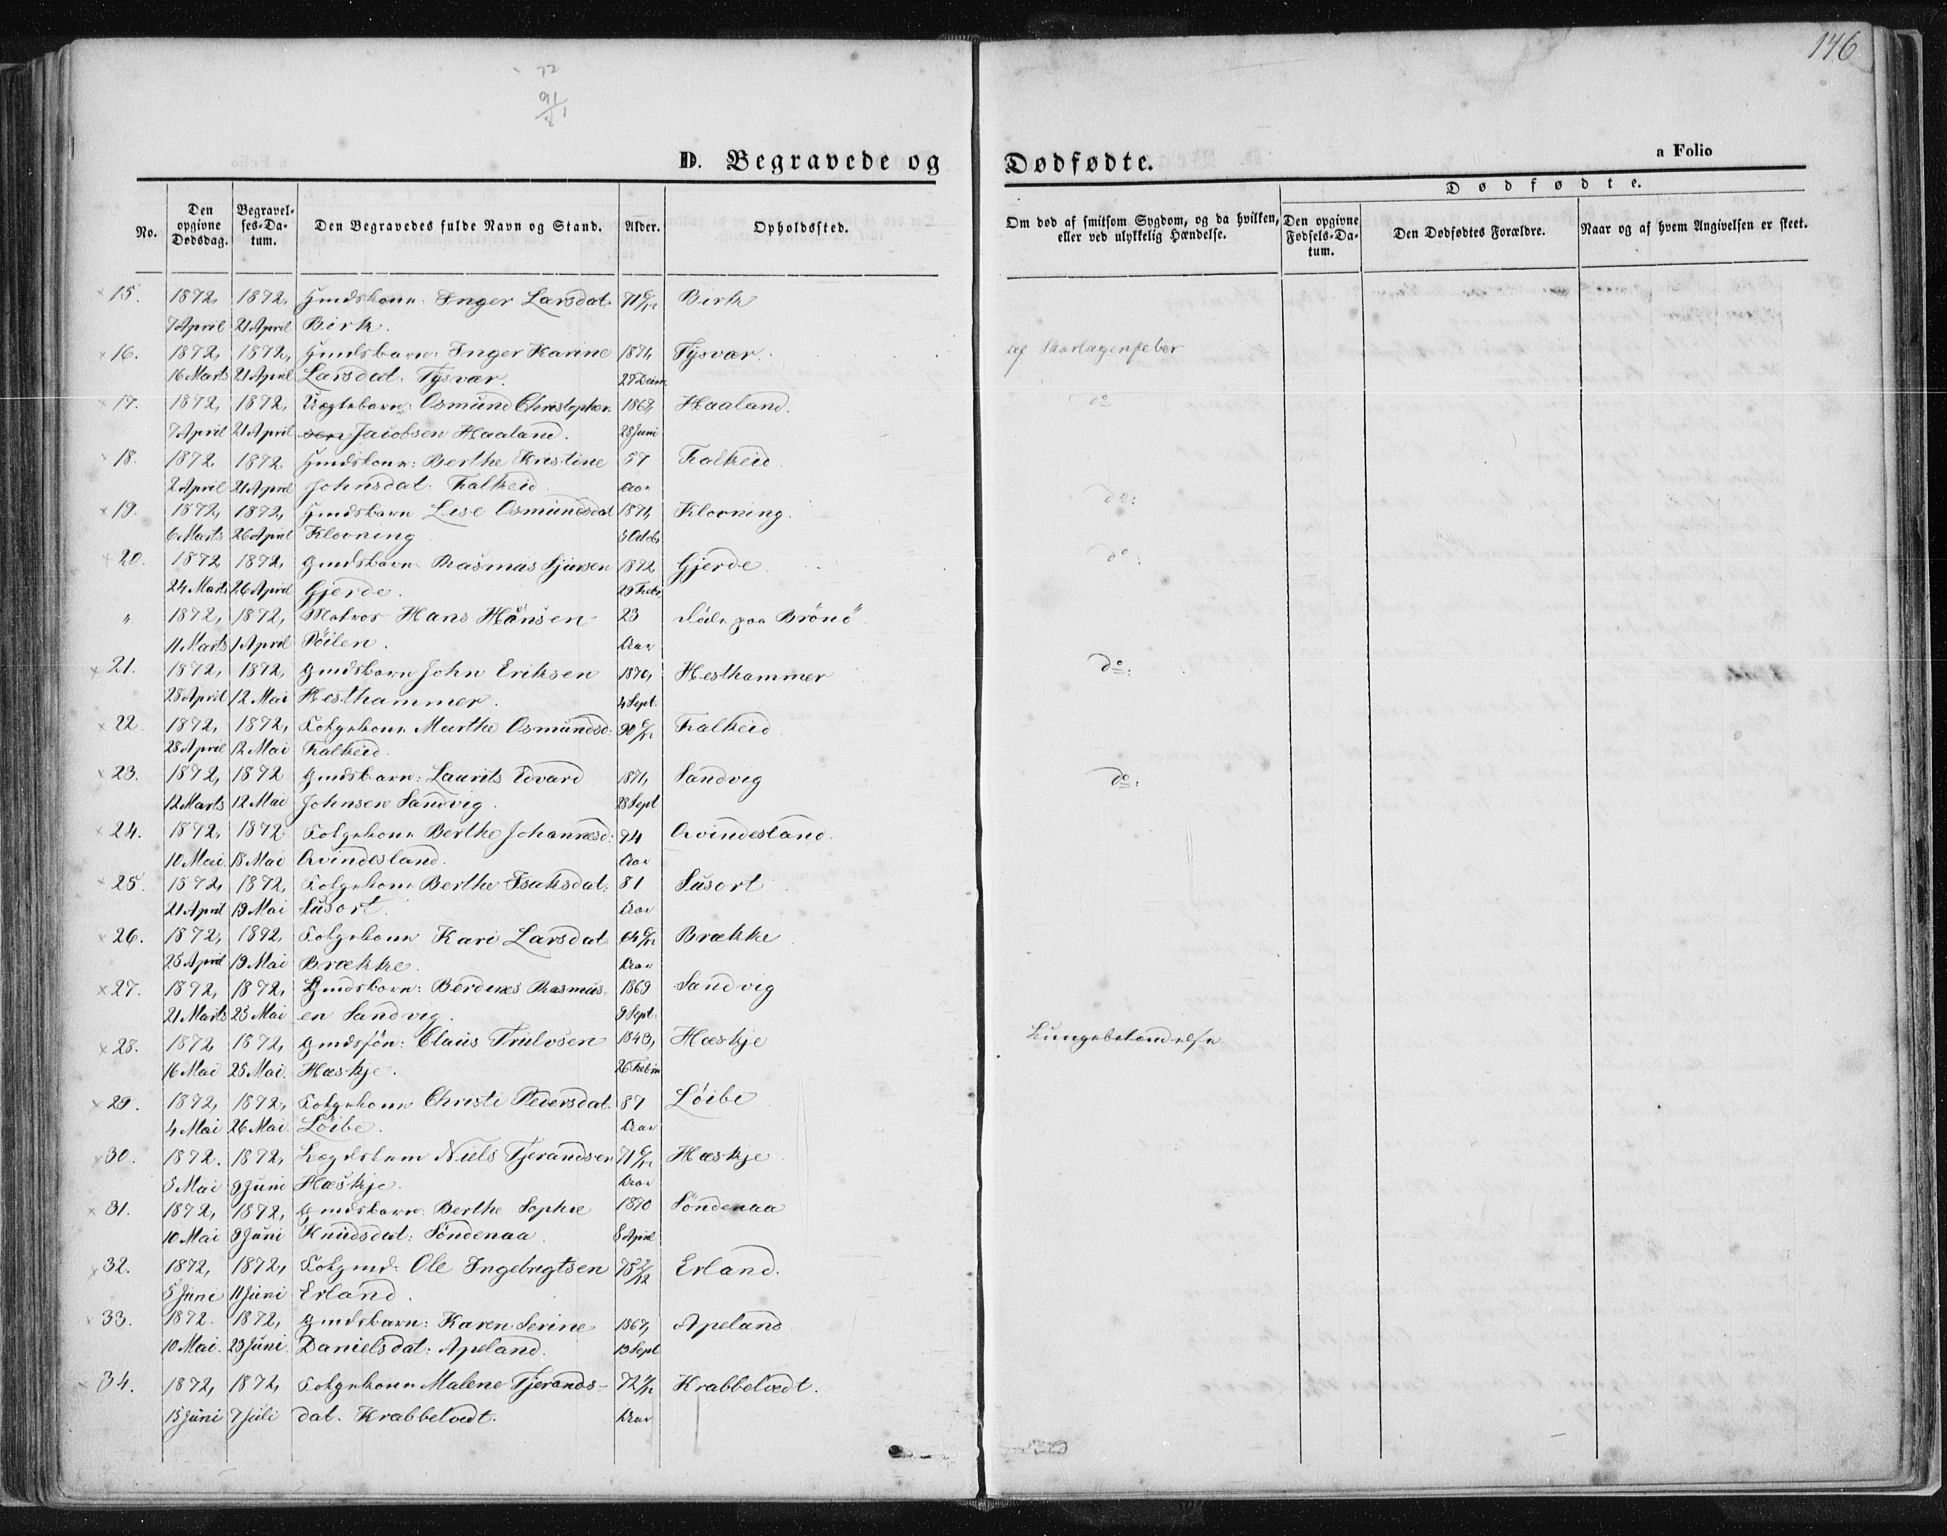 146
72
91
D. Begravede og Dødfødte.
a Folio
No.
Den opgivne Dødsdag.
Begravelses-Datum.
Den Begravedes fulde Navn og Stand.
Alder.
Opholdssted.
Om død af smitsom Sygdom, og da hvilken, eller ved ulykkelig Hændelse.
Dødfødte.
Den opgivne Fødsels-Datum.
Den Dødfødtes Forældre.
Naar og af hvem Angivelsen er skeet.
15. 1872, 1872, Gmdskone: Inger Larsdat. 71 Birk
7 April 21 April Birk.
16. 1872, 1872, Gmdsbarn: Inger Karine 1871, Tysvær. af Skarlagenfeber
16 Marts 21 April Larsdat. Tysvær.
17. 1872, 1872, Osmund Christopher Haaland. do
7 April 21 April sen Jacobsen Haaland. 28 Juni
18. 1872 1872 Gmdskone: Berthe Kristine 57 Falkeid
2 April 21 April Johnsdat: Falkeid. Aar
19. 1872, 1872, Gmdsbarn Lise Osmundsdat 1871, Klovning. do:
6 Marts 26 April Klovning
20. 1872 1872, Gmdsbarn Rasmus Sjursen 1872 Gjerde do:
24 Marts 26 April Gjerde. 29 Febr
" 1872, 1872, Matros Hans Hansen 23 paa Brönö
11 Marts 1 April Aar
21. 1872, 1872, Gmdsbarn John Eriksen 1870, Hesthammer do:
28 April 12 Mai Hesthammer. 4 Sept
22. 1872, 1872, Folgekone Marthe Osmundsd. 90 Falkeid
28 April 12 Mai Falkeid.
23. 1872, 1872 Gmdsbarn: Laurits Edvard 1871, Sandvig do:
12 Marts 12 Mai Johnsen Sandvig. 28 Sept
24. 1872, 1872 Folgekone Berthe Johannesd: 94 Qvindesland.
10 Mai 18 Mai Qvindesland. Aar
25. 1872, 1872, Folgekone Berthe Isaksdat: 81 Susort
21 April 19 Mai Susort. Aar
26. 1872, 1892 Folgekone Kari Larsdat Brække
25 April 19 Mai Brække. Aar
27. 1872, 1872, Gmdsbarn: Berdines Rasmus- 1869 Sandvig
21 Marts 25 Mai en Sandvig. 9 Sept.
28. 1872 1872, Gmdsfön: Claus Trulvsen 1843, Hæskje Lungebetændelse
16 Mai 25 Mai. Hæskje.
29. 1872, 1872, Folgekone Christi Pedersdat. 87 Löibe
4 Mai 26 Mai. Löibe. Aar
30. 1872. 1872, Lægdslem Niels Tjerandsen 71 Hæskje
5 Mai 9 Juni Hæskje. Aar
31. 1872, 1872, Gmdsbarn: Berthe Sophie 1870 Söndenaa
10 Mai 9 Juni Knudsdat: Söndenaa. 8 April
32. 1872, 1872, Folgmd: Ole Ingebrigtsen Erland.
5 Juni 11 Juni Erland.
33. 1872. 1872, Gmdsbarn: Karen Serine 1867, Apeland
10 Mai. 23 Juni. Danielsdat: Apeland. 13 Sept
34. 1872, 1872, Folgekone Malene Tjerands- 72 Krabbetvedt.
15 Juni 7 Juli dat. Krabbetvedt. Aar